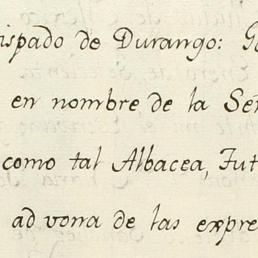 ispado de Durango: G
en nombre de la Señ
como tal Albacea, Tut
ad vona de las expre